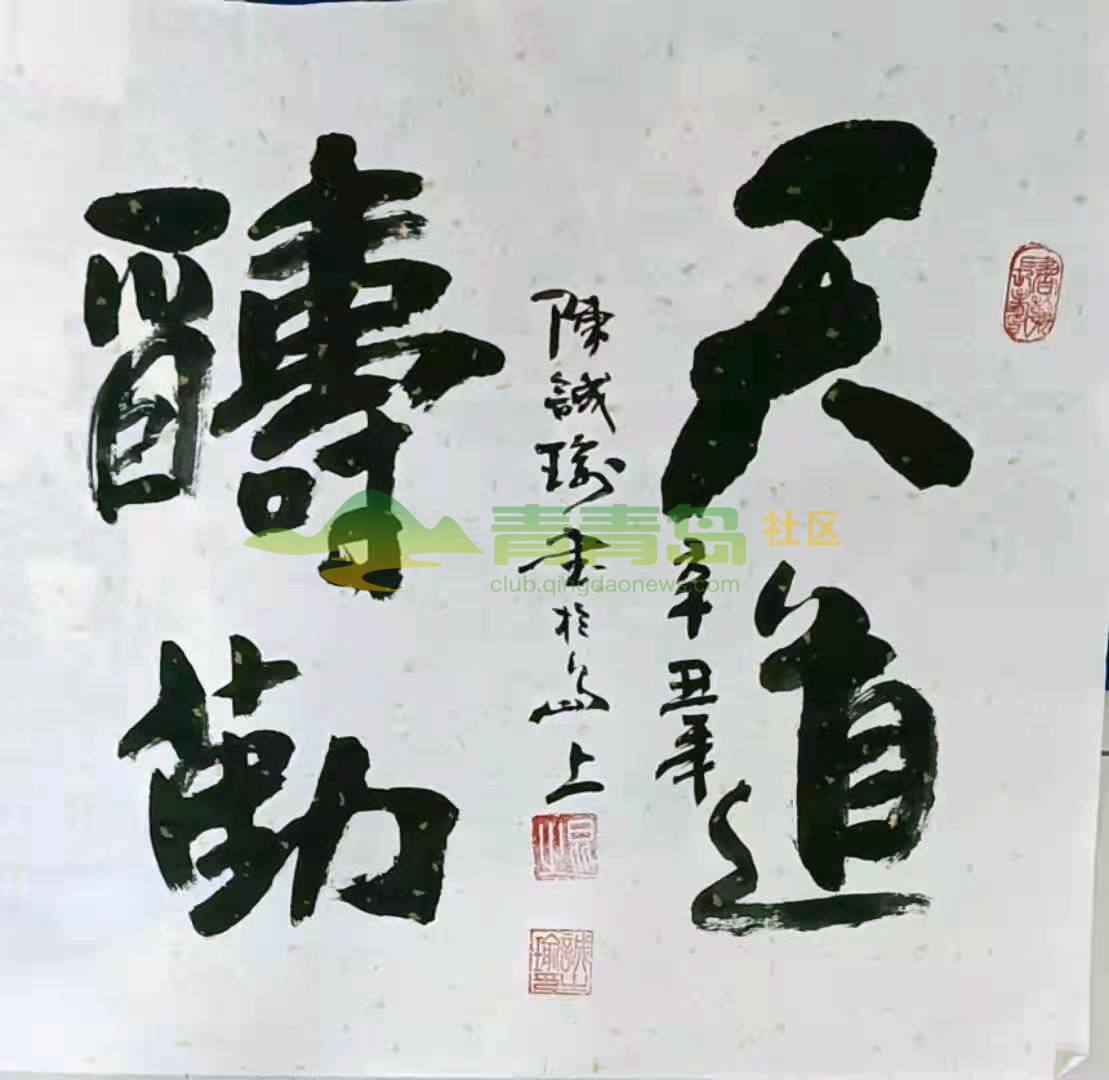 天道
醻勤
辛丑年
陳誠瑜書於島上
青青岛 社区
club.qingdaonews.com
誠瑜印